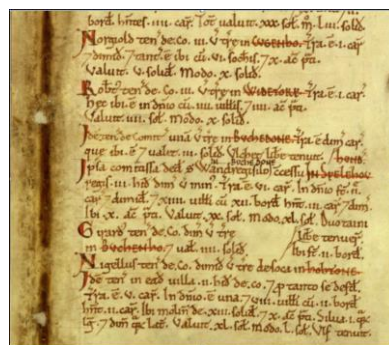 bord hntes .iiii. car. Tot ualuit .xxx. sol. m̃ .liii. sol.
ten de.co. .iii. v̄ træ in Tra .ē. i. car
7 dimid. 7 tant ē ibi cū .vi. sochis. 7 .x. ac pti.
Valuit .v. solid. Modo .x. solid.
Robt ten de.co. .iii. v̄ træ in Tra .ē. i. car
hæc ibi ē in dnio cū .iiii. uillis. 7 .iiii. ac pti.
Valuit .iiii. sol. modo .x. solid.
Idē ten de comit unā v̄ træ in BUCHEDONE. Tra ē dim car
que ibi ē. 7 ualet .iii. solid. libe tenuit.
Ipsa comitissa ded S Wandregisilo ccessu
regis .iii. hid dim v̄ min. Tra ē .vi. car. In dnio st. ii.
car 7 dimidia. 7 .xiiii. uilli cū .xii. bord hnt .iii. car 7 dim.
Ibi .x. ac pti. Valuit .xx. sol. Modo .xl. sol. Duo taini
libe tenuer.
ten de.Co. dim v̄ træ
in BUCHENHO. 7 ual .iiii. sol.
Ibi st .ii. bord.
Nigellus ten de.Co. dimid v̄ træ de soca in
Idē ten in ead uilla .ii. hid de.co. 7 p tanto se defd.
Tra .ē. v. car. In dnio ē una. 7 uilli cū .ii. bord
hnt .ii. car. Ibi molin de .xiii. solid. 7 .x. ac pti. Silua .i. qr
lg. 7 dim qr lat. Valuit .xl. sol. Modo .l. sol. tenuit.